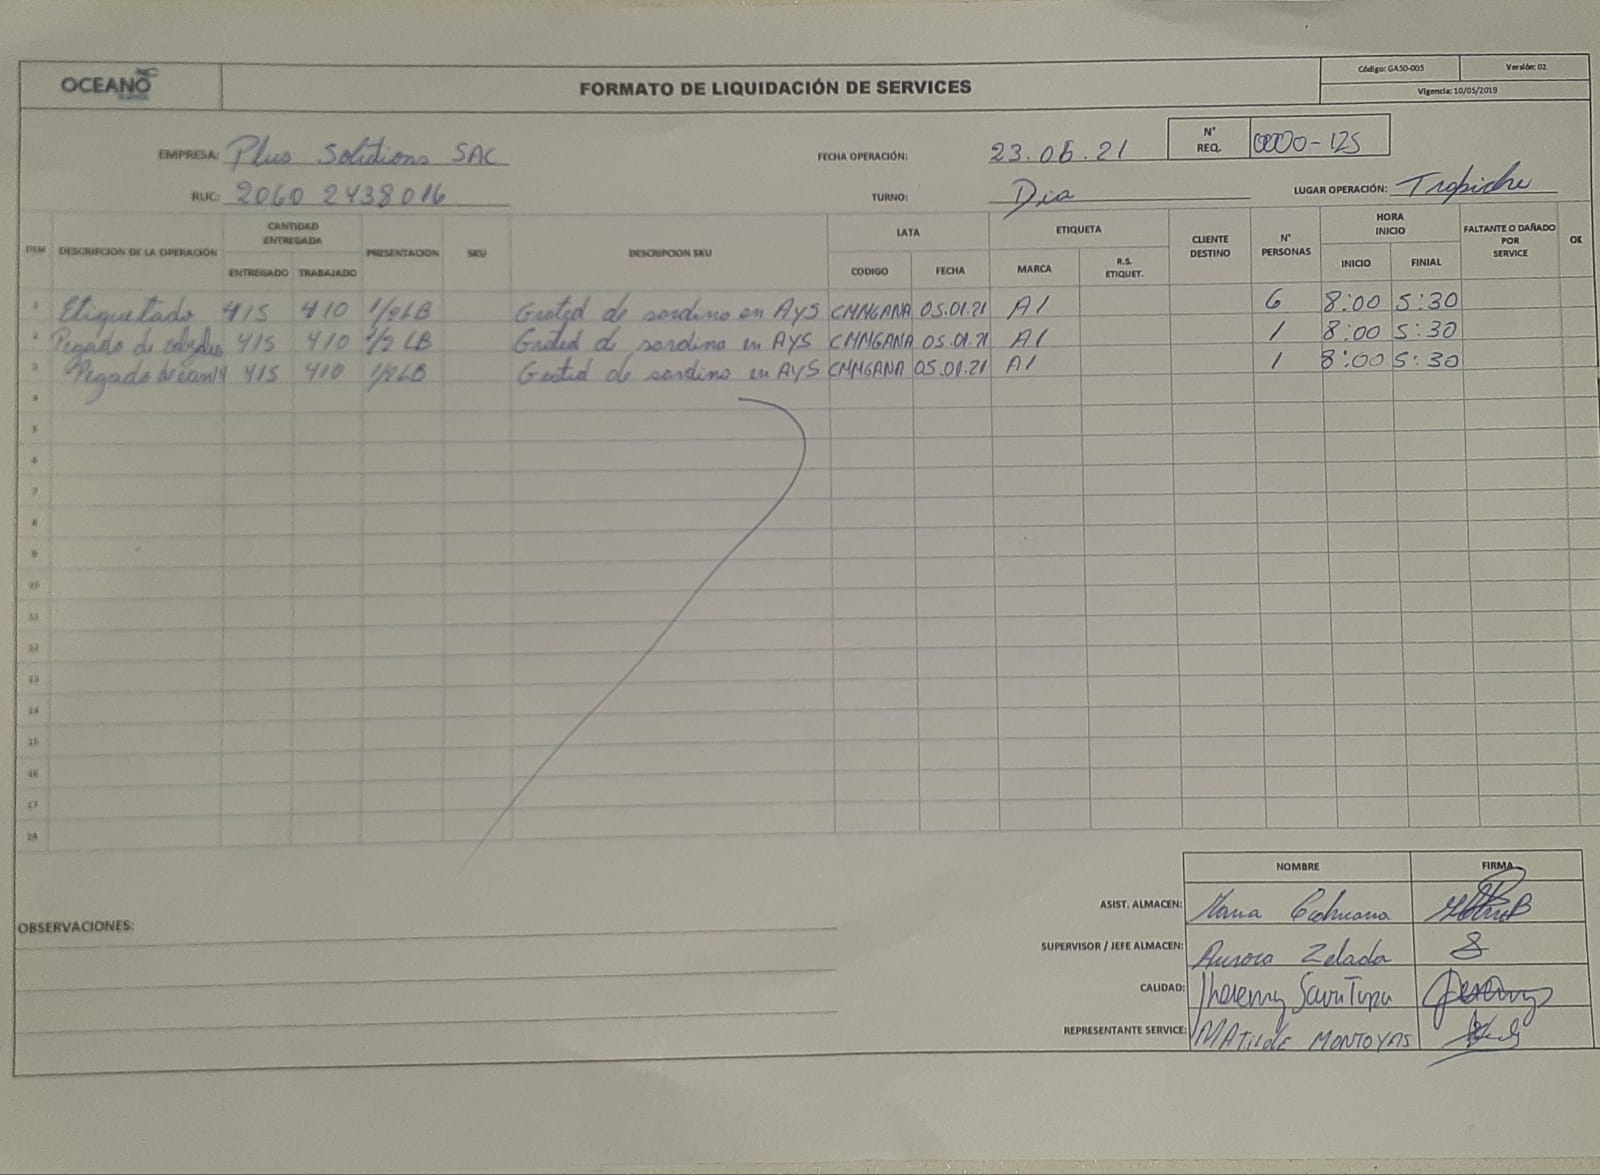 OCEANO
FORMATO DE LIQUIDACIÓN DE SERVICES
Código: GA50-005 Versión: 02
Vigencia: 10/05/2019
EMPRESA: Plus Solutions SAC
FECHA OPERACIÓN: 23.06.21
N° REQ. 0000-125
RUC: 2060 2438016
TURNO: Dia
LUGAR OPERACIÓN: Trapiche
ITEM DESCRIPCION DE LA OPERACIÓN CANTIDAD ENTREGADA PRESENTACION SKU DESCRIPCION SKU LATA ETIQUETA CLIENTE DESTINO N° PERSONAS HORA INICIO FALTANTE O DAÑADO POR SERVICE OK
ENTREGADO TRABAJADO CODIGO FECHA MARCA R.S. ETIQUET. INICIO FINIAL
1 Etiquetado 415 410 1/2LB Grated de sardina en AyS CMMGANA 05.01.21 A1 6 8:00 5:30
2 Pegado de 415 410 1/2 LB Grated de sardina en AYS CMMGANA 05.01.21 A1 1 8:00 5:30
3 Pegado de 415 410 1/2LB Grated de sardina en AYS CMMGANA 05.01.21 A1 1 8:00 5:30
4
5
6
7
8
9
10
11
12
13
14
15
16
17
18
NOMBRE FIRMA
ASIST. ALMACEN: Maria
OBSERVACIONES:
SUPERVISOR / JEFE ALMACEN: Aurora Zelada
CALIDAD:
REPRESENTANTE SERVICE: MATILDE MONTOYAS